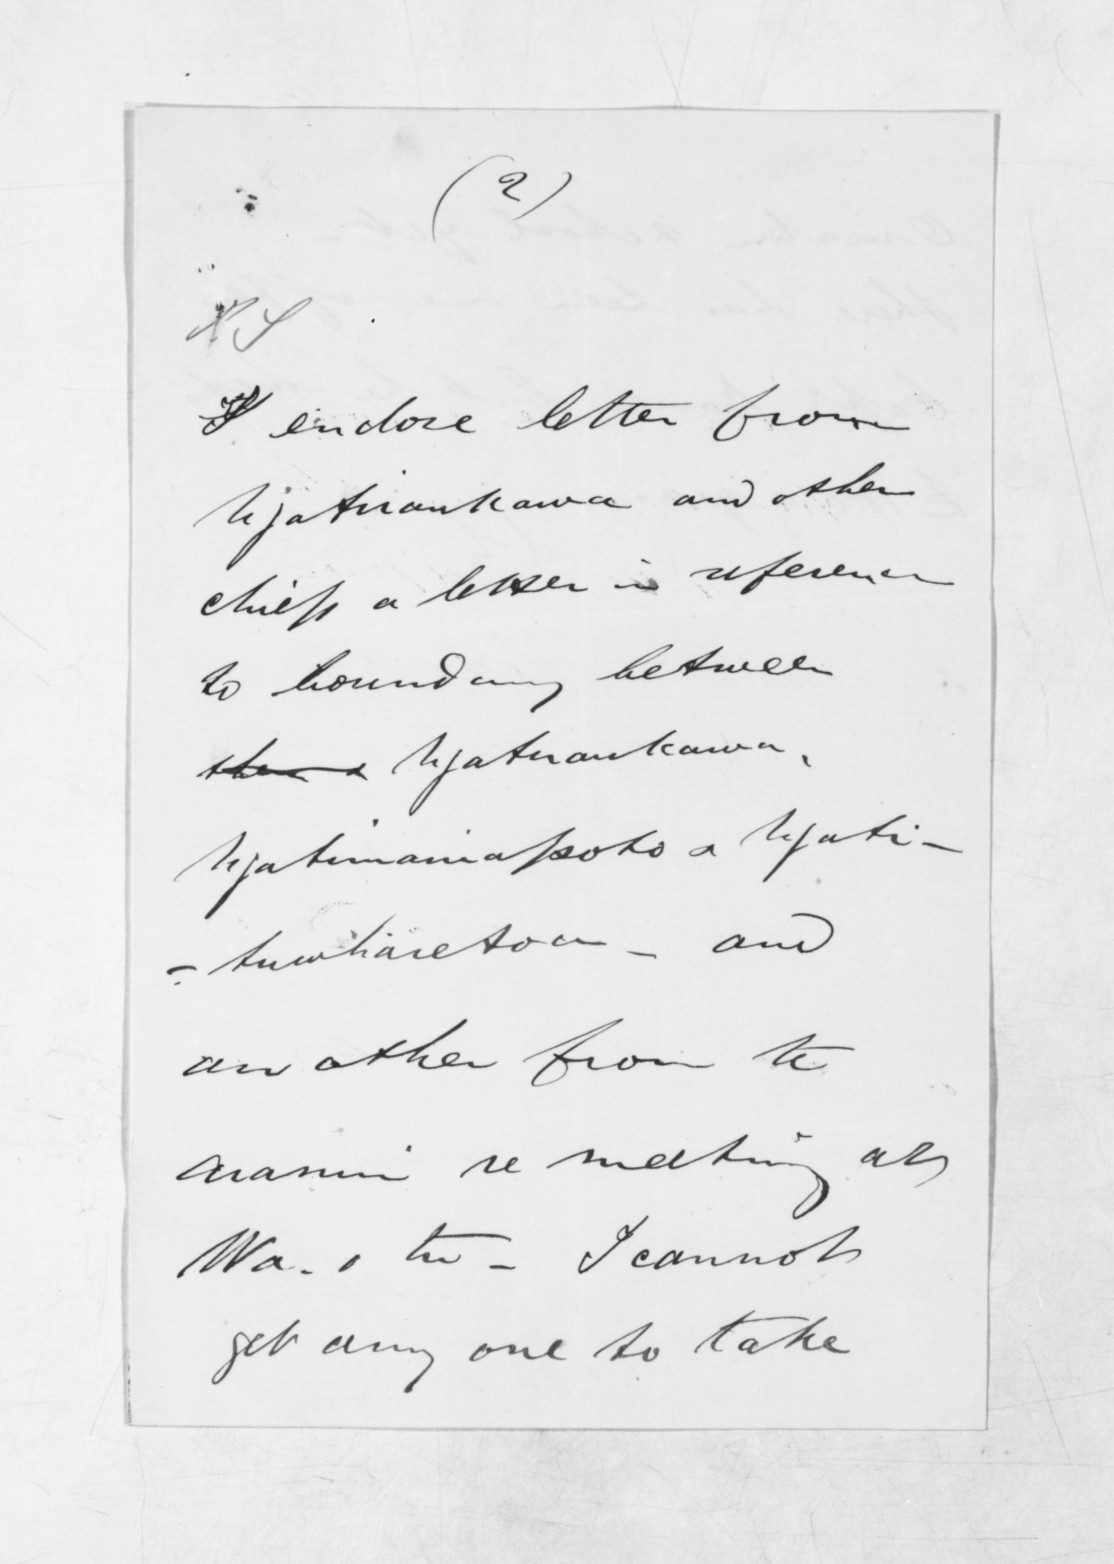 (2)
I enclose letter from
Ngatiraukawa and other
chiefs a letter in reference
to boundary between
Ngatiraukawa,
Ngatimaniapoto & Ngati-
- tuwharetoa - and
another from te
Aramiti re meeting at
Wa. o tu - I cannot
get any one to take